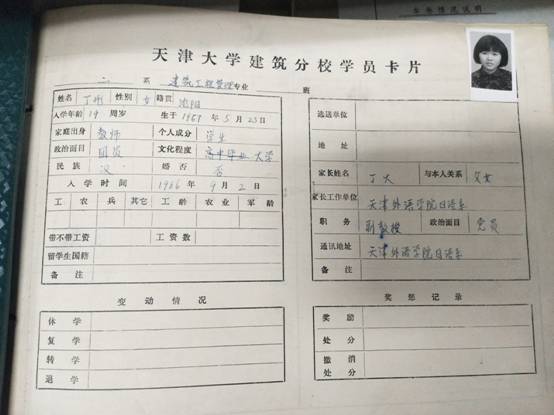 天津大学建筑分校学员卡片
二 系 建筑工程管理专业 班
姓名 丁 性别 女 籍贯 沈阳
入学年龄 19 周岁 生于 1967 年 5 月 23 日
家庭出身 教师 个人成分 学生
政治面目 团员 文化程度 高中毕业 大学
民族 汉 婚否 否
入学时间 1986 年 9 月 2 日
工 农 兵 其它 工龄 农业 军龄
带不带工资 工资数
留学生国籍
备注
选送单位
地址
家长姓名 丁大 与本人关系 父女
家长工作单位 天津外语学院日语系
职务 副教授 政治面目 党员
通讯地址 天津外语学院日语系
备注
变动情况
休学
复学
转学
退学
奖惩记录
奖励
处分
撤消
处分